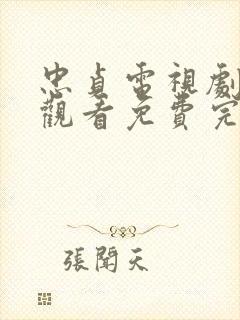 忠貞電視劇
觀看免費完
張聞天